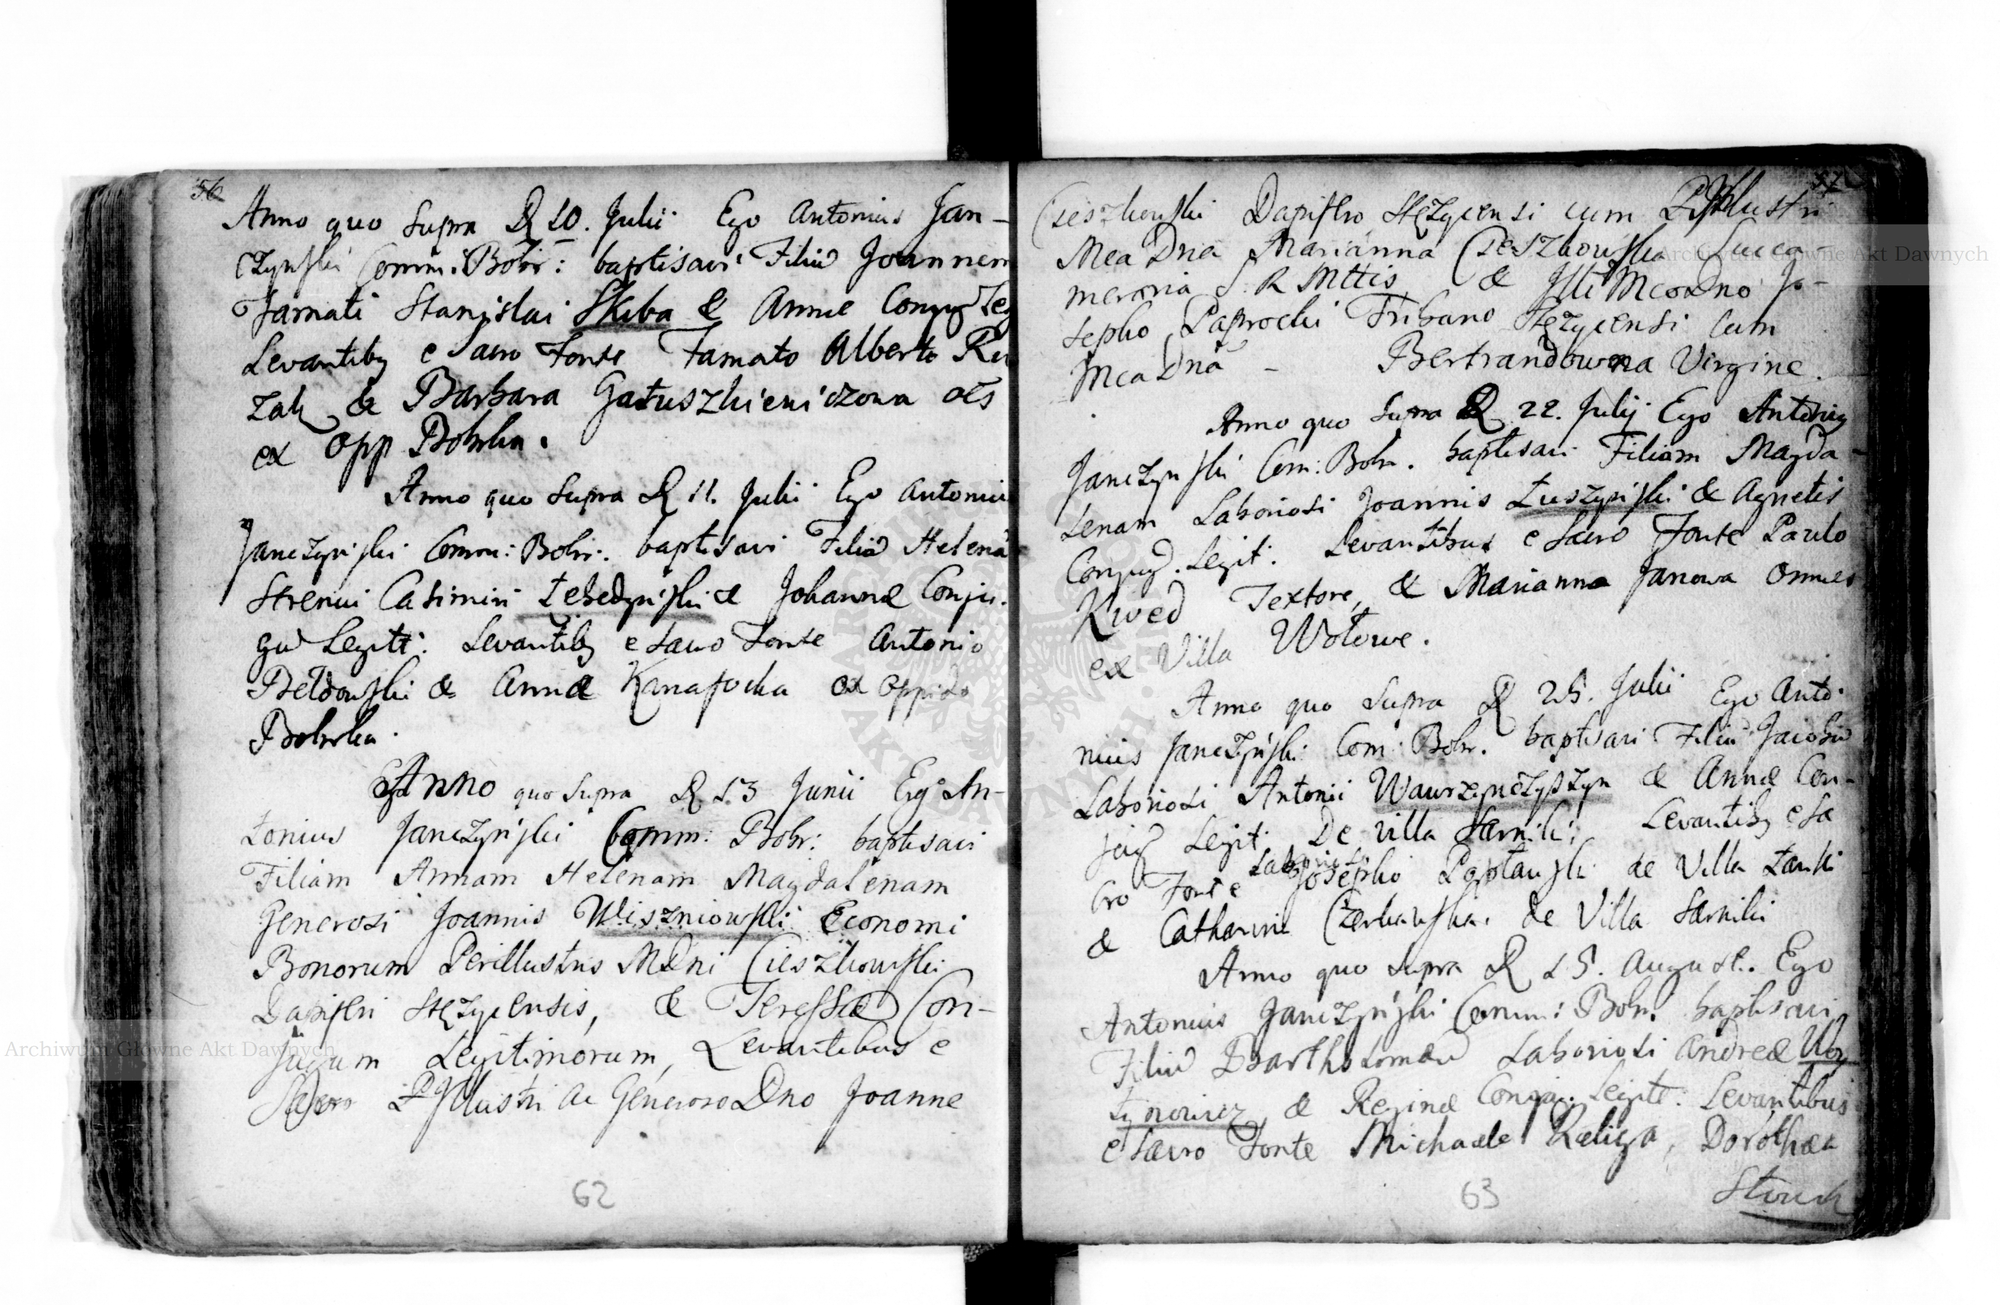 56
Anno quo supra D 10. Julii Ego Antonius Jan-
czynski Comm: Bobr: baptisavi Filiū Joannem
Famati Stanislai Skiba & Annæ Conjug Leg
Levantibꝫ e sacro Fonte Famato Alberto
zak & Barbara Gatuszkieniczowa oēs
ex Opp Bobrka.
Anno quo supra D 11. Julii Ego Antonius
Janczynski Comm: Bobr: baptisavi Filiā Helenā
Strenui Casimiri Łebedzinski & Johannæ Conju-
gū Legitt: Levantibꝫ e sacro Fonte Antonio
Beldowski & Anna Kanafocka ex oppido
Bobrka.
Anno quo supra D 13 Junii Ego An-
tonius Janczynski Comm: Bobr: baptisavi
Filiam Annam Helenam Magdalenam
Generosi Joannis Wiszniowski Economi
Bonorum Perillustris MDni Cieszkowski
Dapiferi Stęzycensis, & Teressæ Con-
jugum Legitimorum, Levantibus e
Sacro PIllustri ac Generoso Dno Joanne
62
57
Cieszkowski Dapifero Stęzycensi cum PIllustri
Mea Dna Marianna Cieszkowska Succa-
meraria S. R Mttis & Illi McoDno Jo-
sepho Paprocki Tribuno Stęzycensi cum
Mca Dnā - Bertrandowna Virgine.
Anno quo supra D 22. Julij Ego Antonius
Janczynski Com: Bobr. baptisavi Filiam Magda-
lenam Laboriosi Joannis Łuszczynski & Agnetis
Conjug. Legit: Levantibus e sacro Fonte Paulo
Kwed Textore, & Marianna Janowa omnes
ex Villa Wotowe.
Anno quo supra D 25. Julii Ego Anto-
nius Janczynski Com: Bobr. baptisavi Filiū Jacobū
Laboriosi Antonii Wawrzynczyszyn & Annæ Con-
jug Legit De Villa Sarniki, Levantibꝫ e Sa
cro Fonte Laborioso Josepho de Villa Łanki
& Catharina Czerkawska. de Villa Sarniki
Anno quo supra D 15. August. Ego
Antonius Janczynski Comm: Bobr. baptisavi
Filiū Bartholomæū Laboriosi Andreæ
& Reginæ Conju. Legitt: Levantibus
e sacro Fonte Michaele Religa, Dorothea
63
Archiwum Główne Akt Dawnych
Archiwum Główne Akt Dawnych
ARCHIWUM GŁÓWNE AKT DAWNYCH